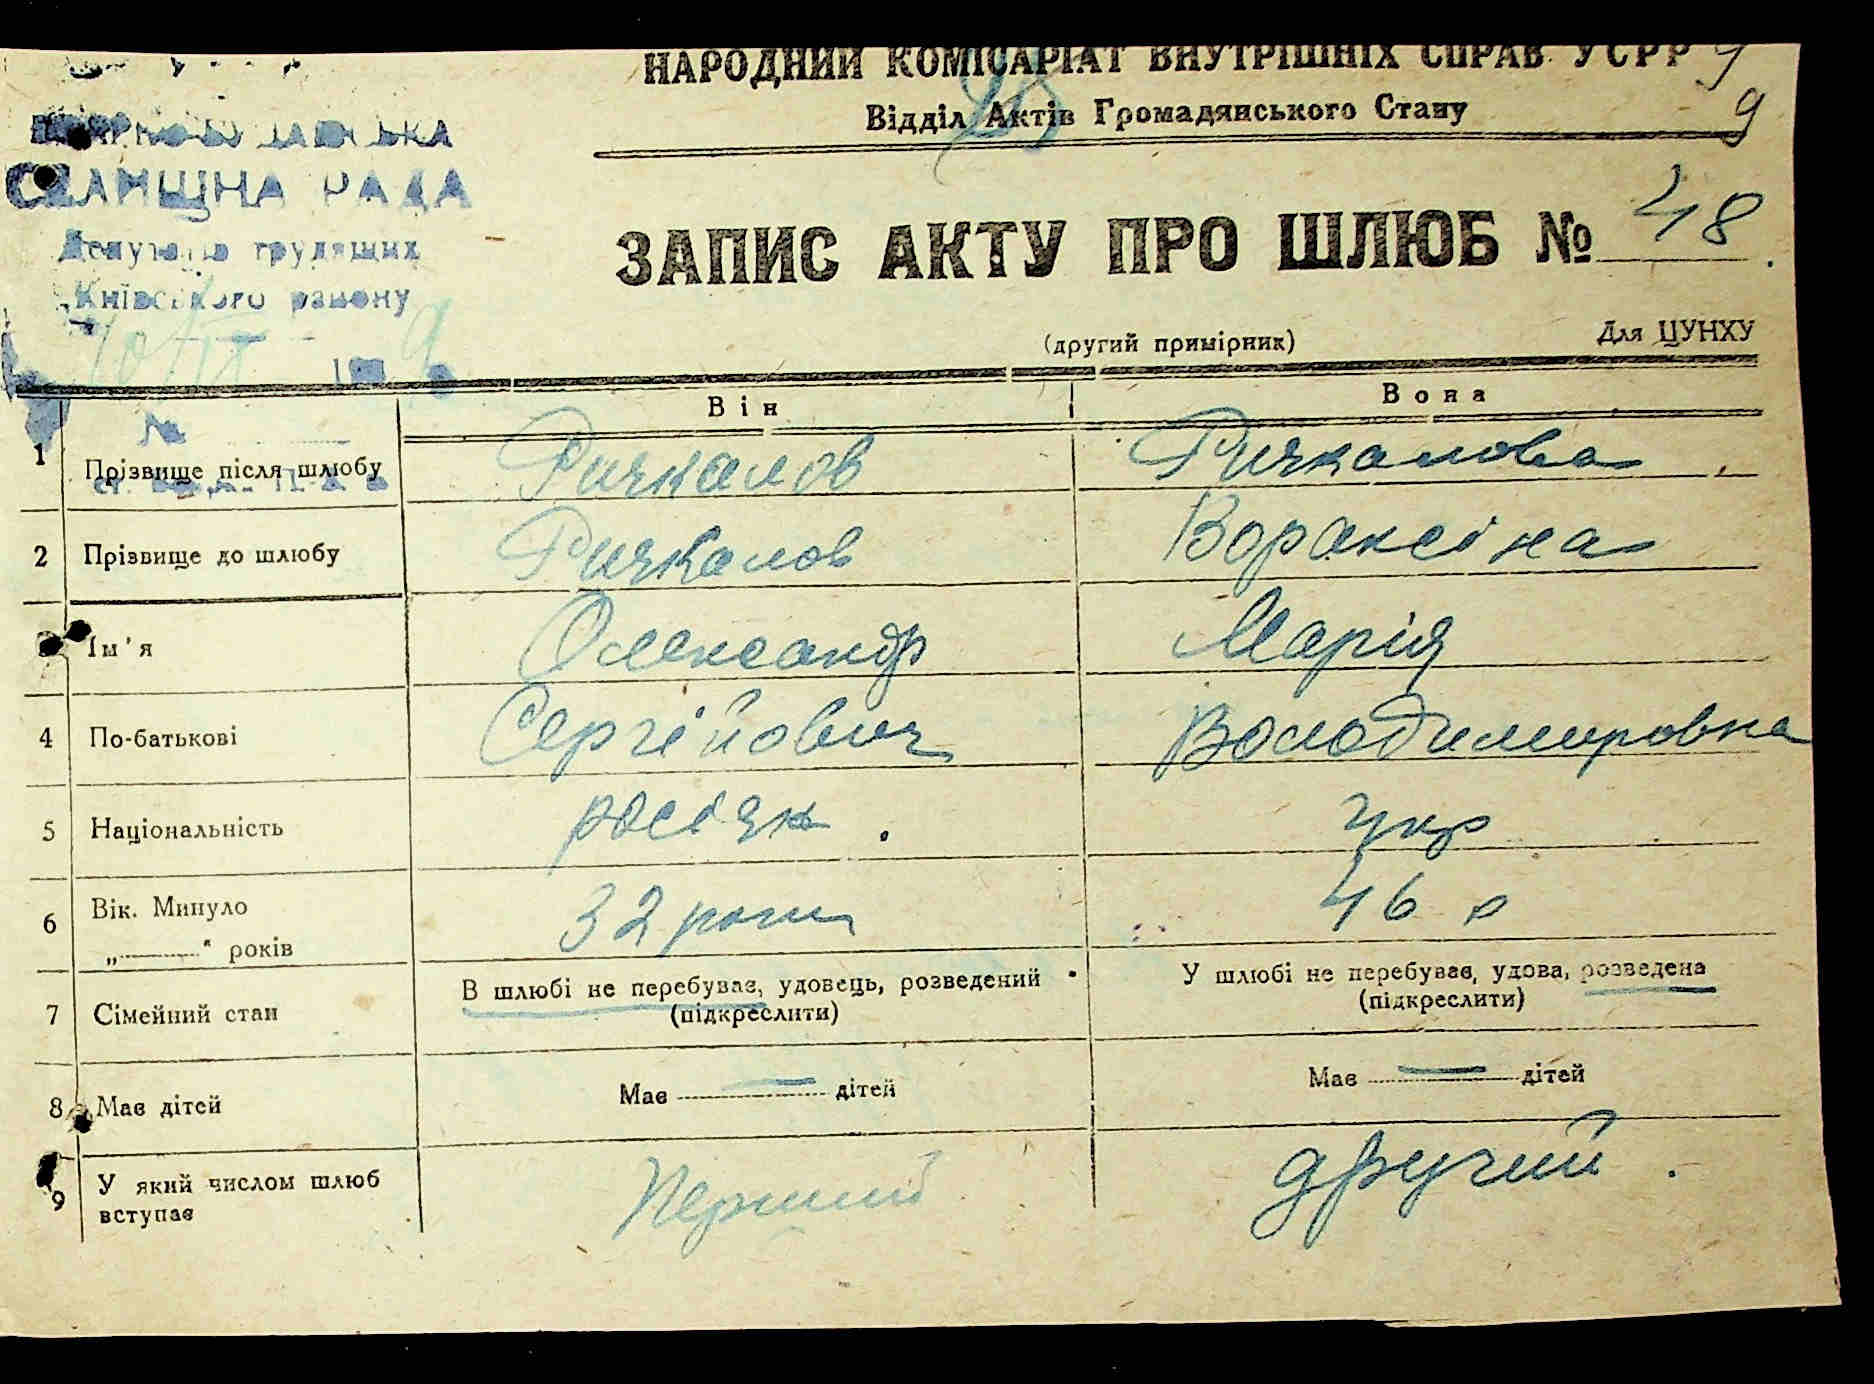 НАРОДНИЙ КОМІСАРІАТ ВНУТРІШНІХ СПРАВ УСРР
Відділ Актів Громадянського Стану
9
СЕЛИЩНА РАДА
Депутатів трудящих
Київського району
ЗАПИС АКТУ ПРО ШЛЮБ № 48.
(другий примірник)
Для ЦУНХУ
Він
Вона
№
1 Прізвище після шлюбу Ричкалов Ричкалова
2 Прізвище до шлюбу Ричкалов Вораксіна
Ім'я Олександр Марія
4 По-батькові Сергійович Володимировна
5 Національність росіян. Укр
6 Вік. Минуло 32 роки 46 р
„ “ років
7 Сімейний стан В шлюбі не перебуває, удовець, розведений У шлюбі не перебуває, удова, розведена
(підкреслити) (підкреслити)
8 Має дітей Має — дітей Має — дітей
9 У який числом шлюб Перший другий.
вступає